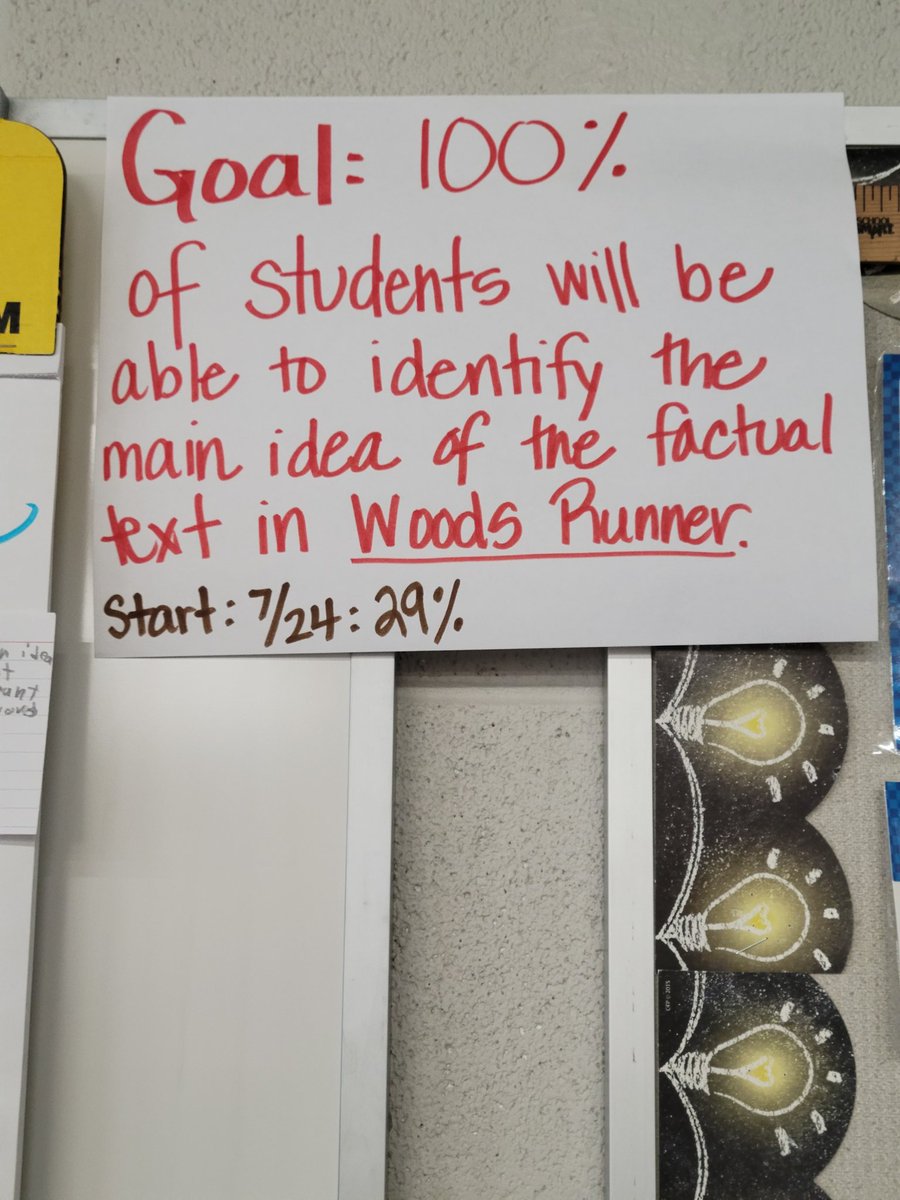 Goal: 100%
of students will be
able to identify the
main idea of the factual
text in Woods Runner.
Start: 7/24: 29%
M
SCHOOL
SMART
idea